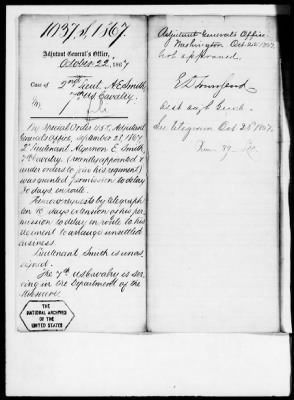 1037 S 1867.
Adjutant General's Office,
October 22, 1867
Case of 2nd Lieut. A. E. Smith,
7th US Cavalry.
By Special Order 457, Adjutant
General's Office, September 25, 1867
2d Lieutenant Algernon E. Smith,
7th Cavalry, (recently appointed &
under orders to join his regiment)
was granted permission to delay
30 days en route.
He now requests by telegraph
an 10 days extension of his per
mission to delay en route to his
regiment to arrange unsettled
business.
Lieutenant Smith is unas
signed.
The 7th US Cavalry is ser
ving in the Department of the
Missouri.
THE
NATIONAL ARCHIVES
OF THE
UNITED STATES
Adjutant General's Office
Washington Oct 25 1867.
Not approved.
E D Townsend
Asst adj Genl.
See telegram Oct 25th 1867.